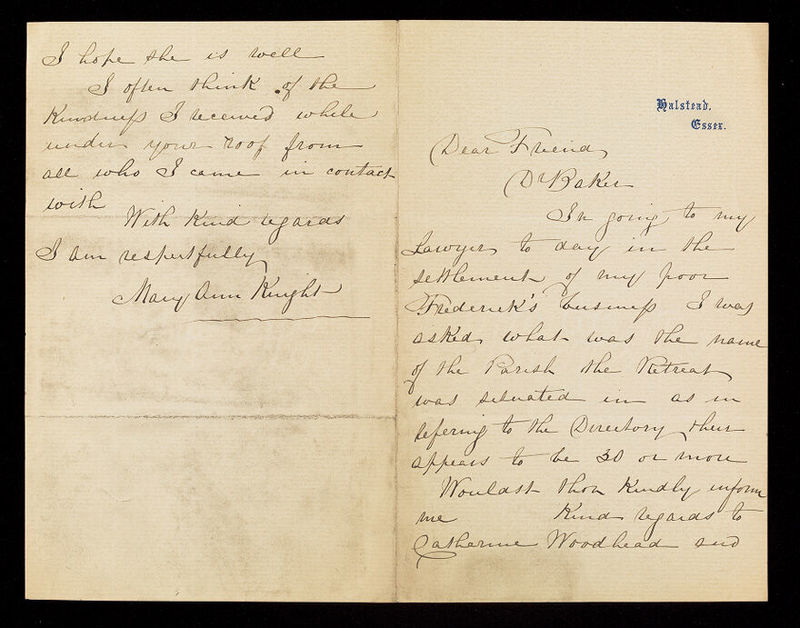 Halstead,
Essex.
Dear Friend,
Dr Baker
In going to my
Lawyer to day in the
settlement of my poor
Frederick's business I was
asked what was the name
of the Parish the Retreat
was situated in as in
refering to the Directory their
appears to be 30 or more
Wouldst thou kindly inform
me Kind regards to
Catherine Woodhead and
I hope she is well
I often think of the
Kindness I received while
under your roof from
all who I came in contact
with
With Kind regards
I am respectfully
Mary Ann Knight